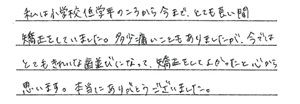 私は小学校低学年のころから今まで、とても長い間
矯正をしていました。多少痛いこともありましたが、今では
とてもきれいな歯並びになって、矯正をしてよかったと心から
思います。本当にありがとうございました。